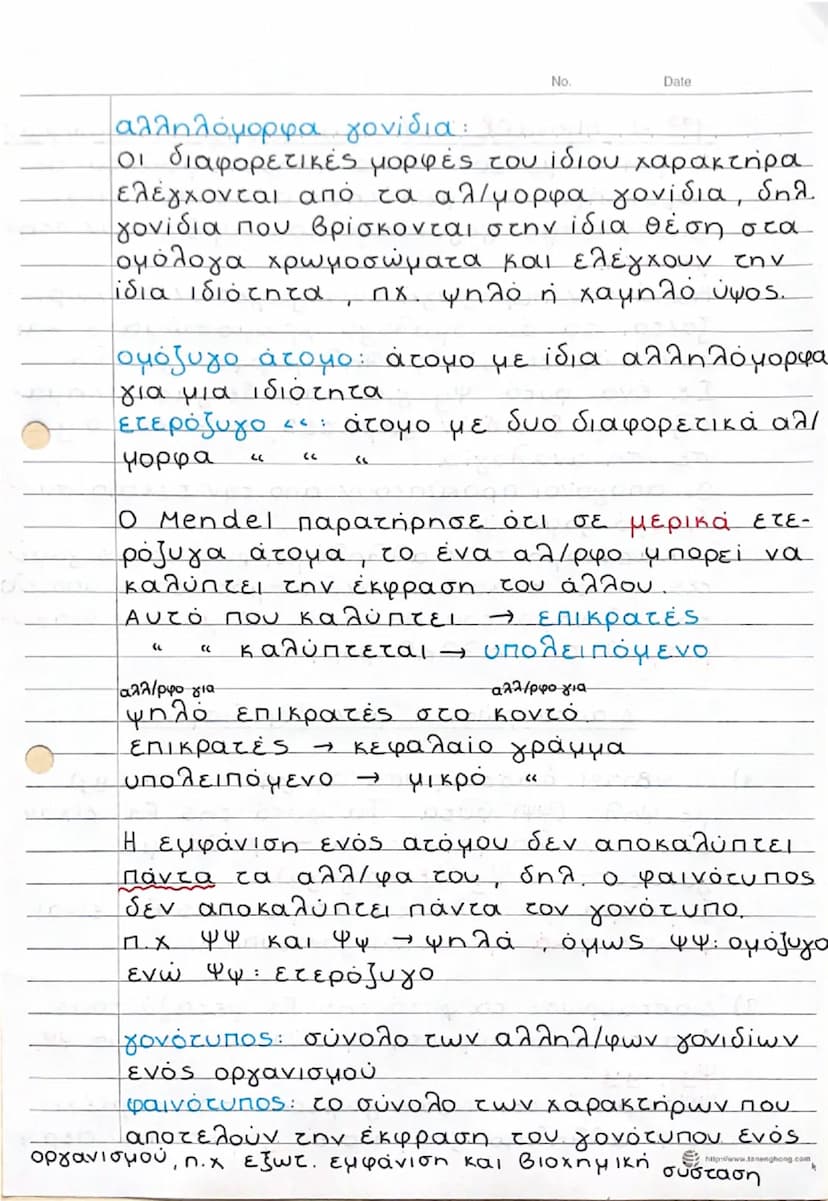 No. Date
αλληλόμορφα γονίδια:
Οι διαφορετικές μορφές του ίδιου χαρακτήρα
ελέγχονται από τα αλ/μορφα γονίδια, δηλ.
γονίδια που βρίσκονται στην ίδια θέση στα
ομόλογα χρωμοσώματα και ελέγχουν την
ίδια ιδιότητα, πχ. ψηλό ή χαμηλό ύψος.
ομόζυγο άτομο: άτομο με ίδια αλληλόμορφα
για μια ιδιότητα
ετερόζυγο “: άτομο με δυο διαφορετικά αλ/
μορφα “ “ “
Ο Mendel παρατήρησε ότι σε μερικά ετε-
ρόζυγα άτομα, το ένα αλ/ρφο μπορεί να
καλύπτει την έκφραση του άλλου.
Αυτό που καλύπτει → επικρατές
“ “ καλύπτεται → υπολειπόμενο
αλλ/ρφο για αλλ/ρφο για
ψηλό επικρατές στο κοντό.
επικρατές → κεφαλαίο γράμμα
υπολειπόμενο → μικρό “
Η εμφάνιση ενός ατόμου δεν αποκαλύπτει
πάντα τα αλλ/φα του, δηλ. ο φαινότυπος
δεν αποκαλύπτει πάντα τον γονότυπο.
π.χ ΨΨ και Ψψ → ψηλά, όμως ΨΨ: ομόζυγο
ενώ Ψψ: ετερόζυγο
γονότυπος: σύνολο των αλληλ/φων γονιδίων
ενός οργανισμού
φαινότυπος: το σύνολο των χαρακτήρων που
αποτελούν την έκφραση του γονότυπου ενός
οργανισμού, π.χ εξωτ. εμφάνιση και βιοχημική σύσταση